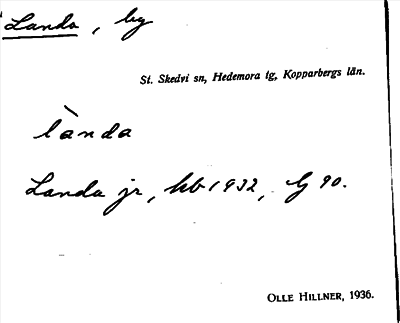 Landa, by
St. Skedvi sn, Hedemora tg, Kopparbergs län.
lànda
Landa jr, hb 1932, G 90.
OLLE HILLNER, 1936.